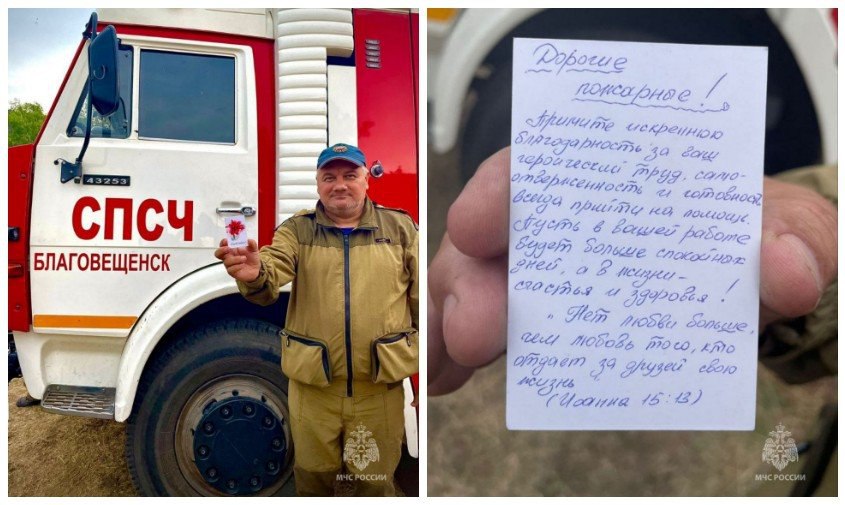 43253
СПСЧ
БЛАГОВЕЩЕНСК
МЧС РОССИИ
Дорогие
пожарные!
Примите искреннюю
благодарность за ваш
героический труд, само-
отверженность и готовность
всегда прийти на помощь.
Пусть в вашей работе
будет больше спокойных
дней, а в жизни-
счастья и здоровья!
"Нет любви больше,
чем любовь того, кто
отдает за друзей свою
жизнь"
(Иоанна 15:13)
МЧС РОССИИ